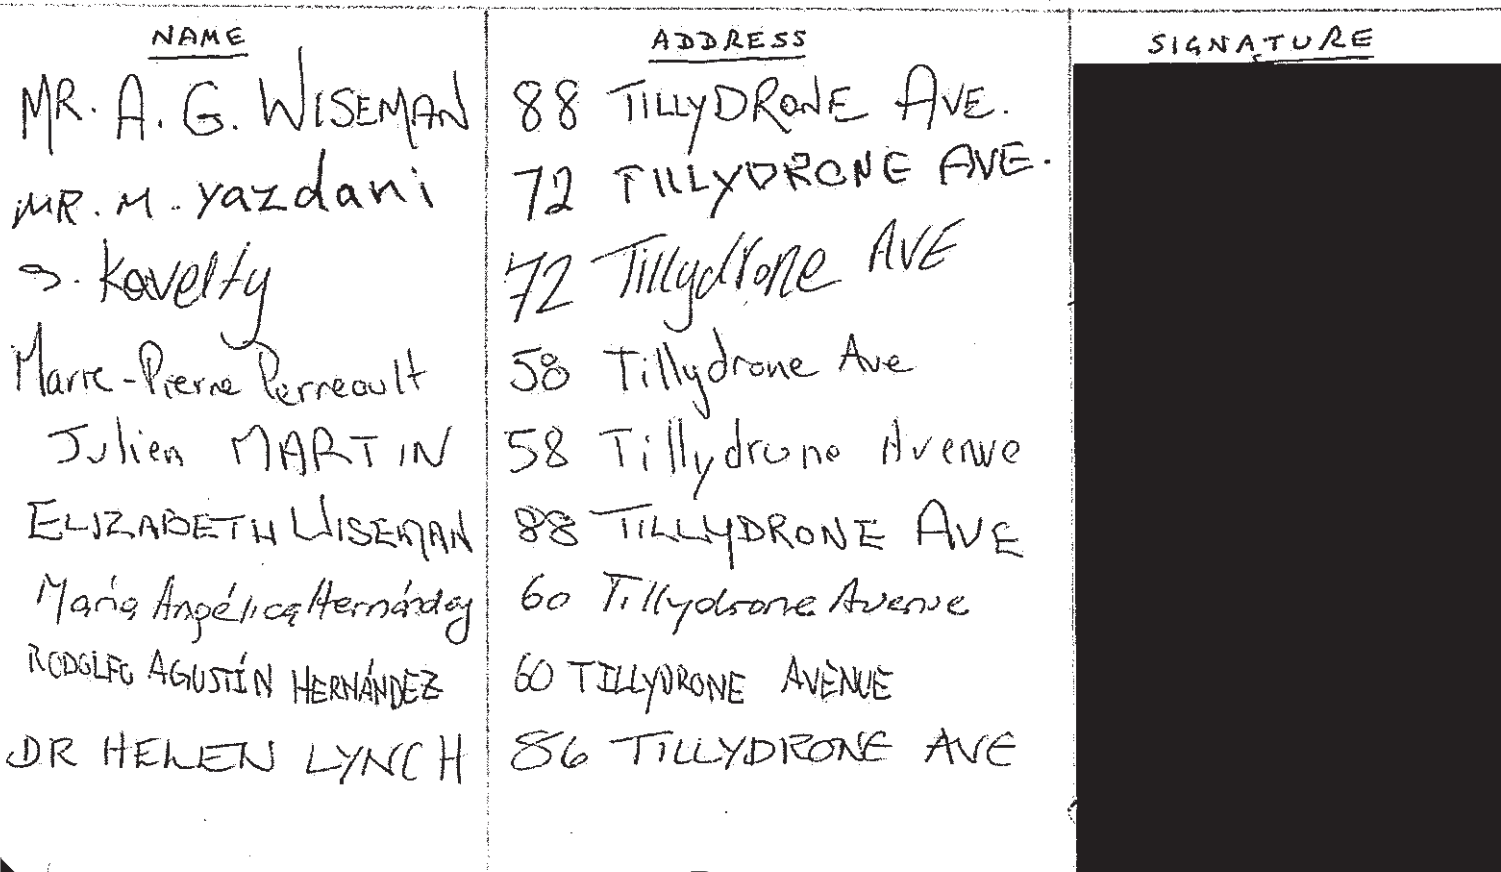 NAME ADDRESS SIGNATURE
MR. A. G. WISEMAN 88 TILLYDRONE AVE.
MR. M. Yazdani 72 TILLYDRONE AVE.
S. Kavelty 72 Tillydrone AVE
Marie-Pierre Perreault 58 Tillydrone Ave
Julien MARTIN 58 Tillydrone Avenue
ELIZABETH WISEMAN 88 TILLYDRONE AVE
María Angélica Hernández 60 Tillydrone Avenue
RODOLFO AGUSTÍN HERNÁNDEZ 60 TILLYDRONE AVENUE
DR HELEN LYNCH 86 TILLYDRONE AVE